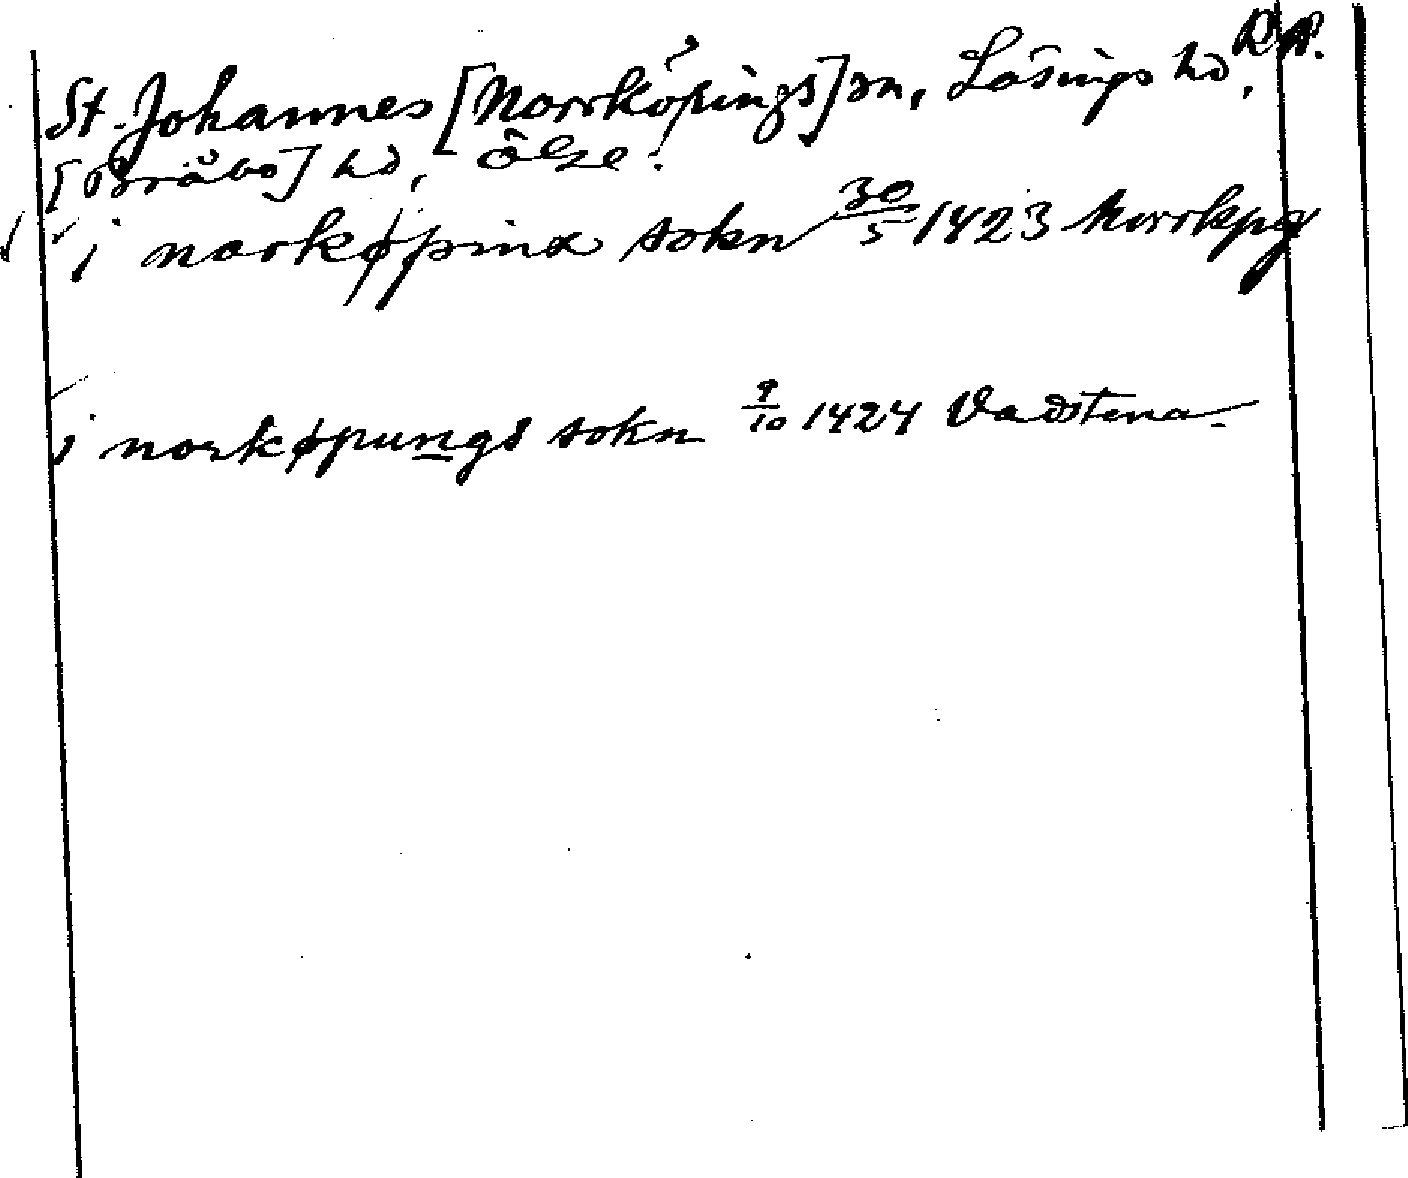 R.A.
St. Johannes [Norrköpings] sn, Lösings hd,
[Bråbo] hd, Ög.
i norkøpinx sokn 30/5 1423 Norrkpg
i norkøpungs sokn 9/10 1424 Vadstena.